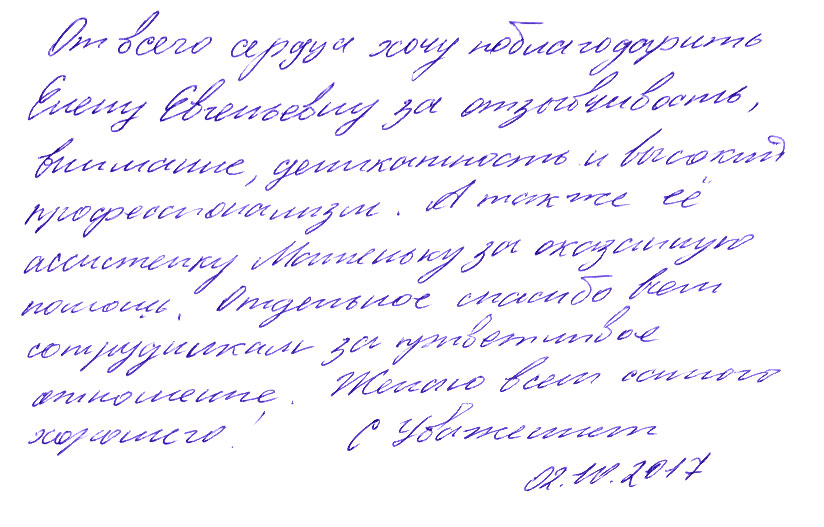 От всего сердца хочу поблагодарить
Елену Евгеньевну за отзывчивость,
внимание, деликатность и высокий
профессионализм. А также её
ассистентку Машеньку за оказанную
помощь. Отдельное спасибо всем
сотрудникам за приветливое
отношение. Желаю всем самого
хорошего!
С Уважением
02.10.2017